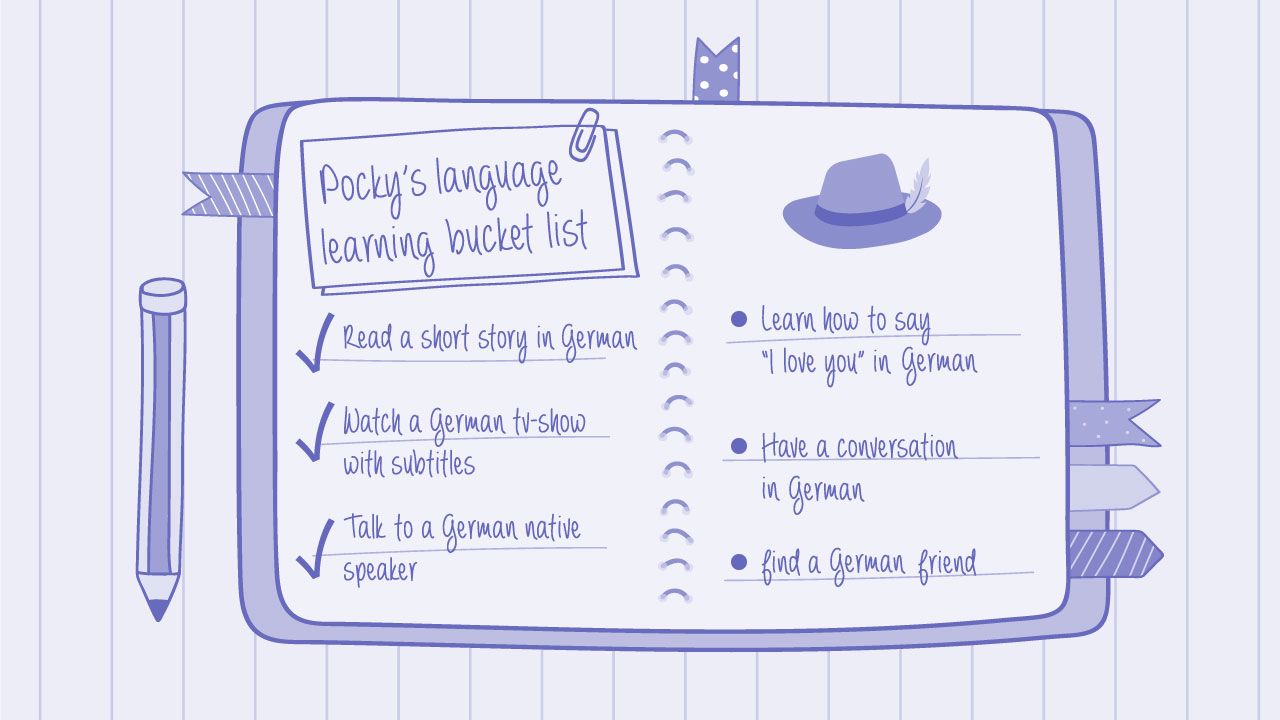 Pocky's language
learning bucket list
Read a short story in German
Watch a German tv-show
with subtitles
Talk to a German native
speaker
Learn how to say
"I love you" in German
Have a conversation
in German
find a German friend